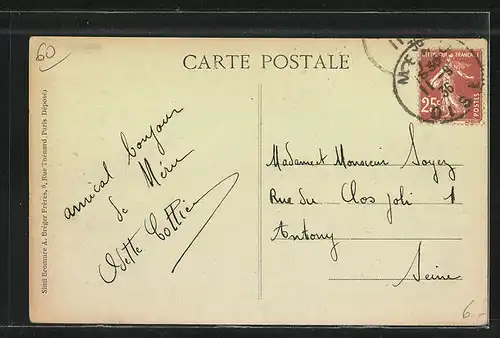 60
CARTE POSTALE
RÉPUBLIQUE FRANÇAISE
25c
POSTES
amical bonjour
de Méru
Odette Cottie
Madame et Monsieur Soyez
Rue du Clos joli 1
Antony
Seine
Simi-Bromure A. Breger Frères, 9, Rue Thénard (Paris Déposé)
6.-